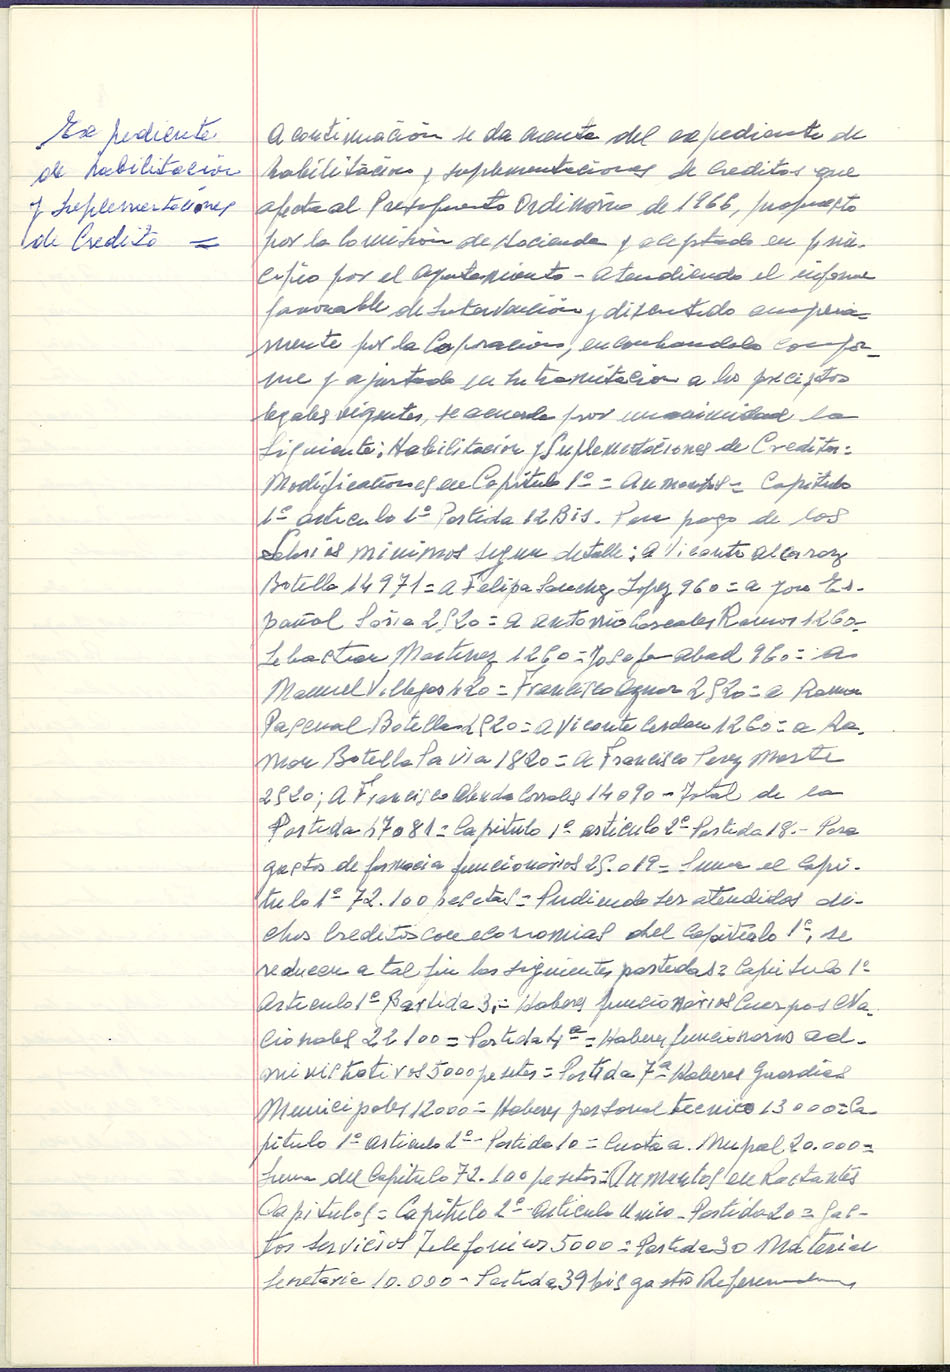 Expediente
de habilitación
y suplementaciones
de Credito =
A continuación se da cuenta del expediente de
habilitación y suplementaciones de Creditos que
afecta al Presupuesto Ordinario de 1966, propuesto
por la Comisión de Hacienda y aceptado en prin-
cipio por el Ayuntamiento - atendiendo el informe
favorable de Intervención y discutido ampeia-
mente por la Coporación, encontrandolo confor-
me y ajustado en su tramitación a los preceptos
legales vigentes, se acuerda por unanimidad la
siguiente: Habilitación y Suplementaciones de Creditos:
Modificaciones en Capitulo 1º = Aumentos = Capitulo
1º articulo 1º Partida 12 Bis. Para pago de los
Salarios minimos segun detalle: a Vicente Alcaraz
Botella 14971 = a Felipa Sanchez Lopez 960 = a Jose Es-
pañol Soria 2520 = a Antonio Cascales Ramos 1260-
Sebastian Martinez 1260 = Josefa Abad 960 = a
Manuel Villegas 420 = Francisco Aznar 2520 = a Ramon
Pascual Botella 2520 = a Vicente Cerdan 1260 = a Ra-
mon Botella Pavia 1820 = a Francisco Perez
2520; A Francisco 14090 - Total de la
Partida 47081 = Capitulo 1º articulo 2º Partida 18.- Para
gastos de farmacia funcionarios 25.019 = Suma el Capi-
tulo 1º 72.100 pesetas = Pudiendo ser atendidos di-
chos Creditos con economias del Capitulo 1º, se
reducen a tal fin las siguientes partidas = Capitulo 1º
Articulo 1º Partida 3, = Haberes funcionarios Cuerpos Na-
cionales 22100 = Partida 4ª = Haberes funcionarios ad-
ministrativos 5000 pesetas = Partida 7ª Haberes Guardias
Municipales 12000 = Haberes personal tecnico 13000 = Ca-
pitulo 1º articulo 2º - Partida 10 = Cuota a. Munpal 20.000 =
Suma del Capitulo 72.100 pesetas = Aumentos en Restantes
Capitulos = Capitulo 2º articulo Unico - Partida 20 = Gas-
tos Servicios Telefonicos 5000 = Partida 30 Material
Secretaria 10.000 - Partida 39 bis gasto Referendum